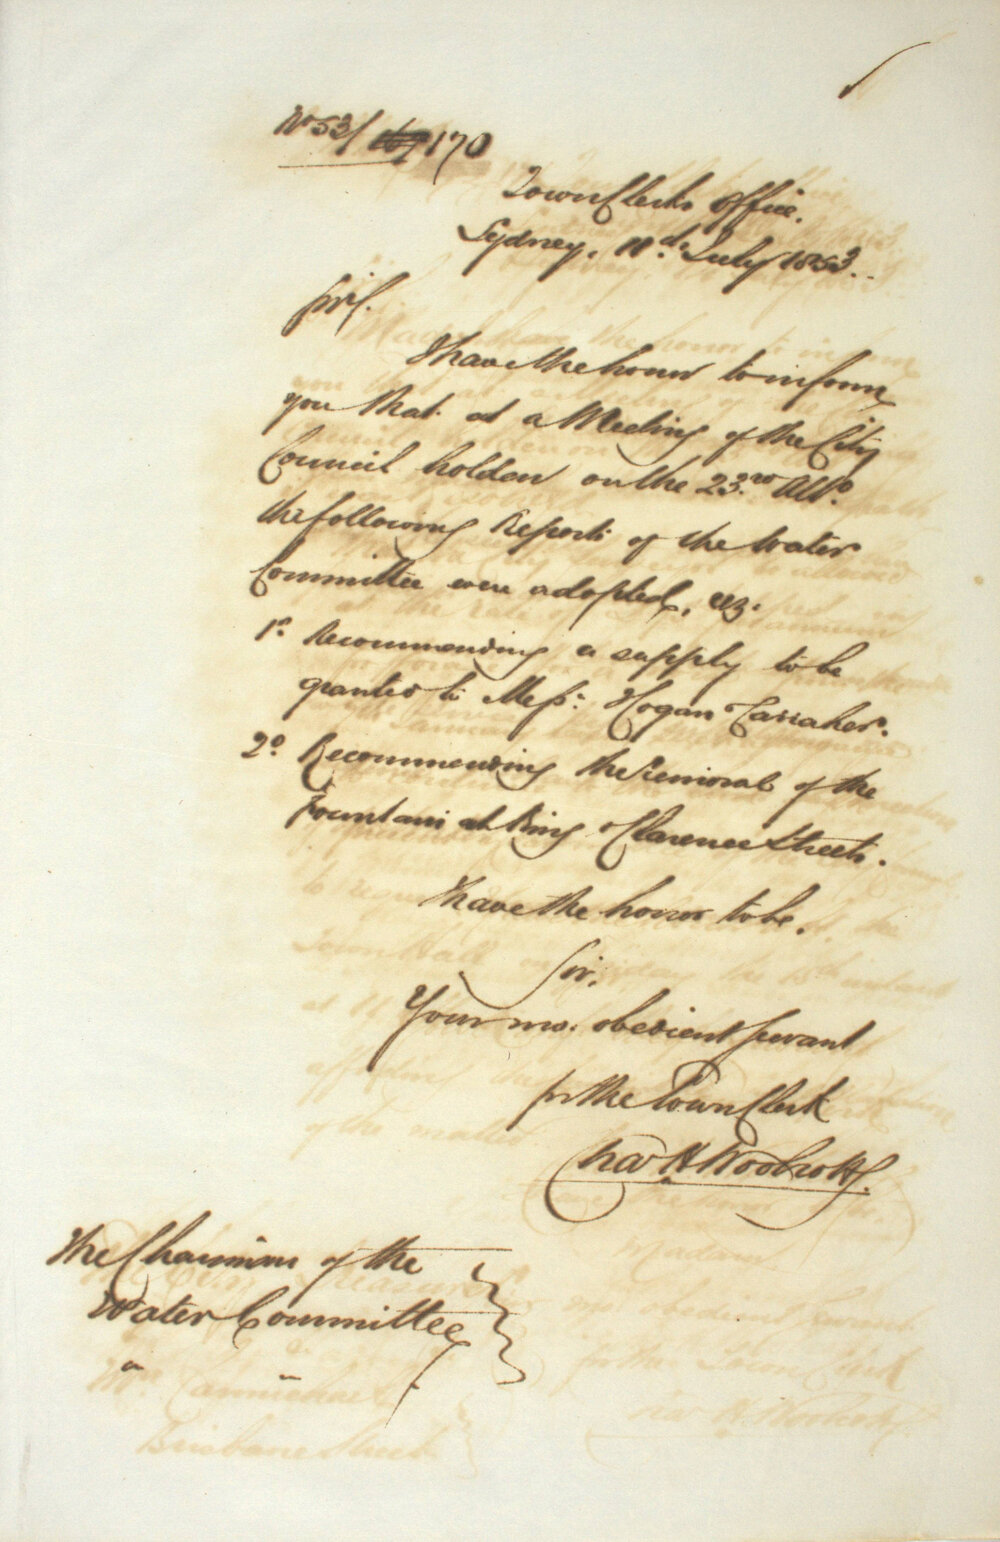 No 53/ 170
Town Clerks Office.
Sydney, 11th July 1853.
Sir,
I have the honor to inform
you that at a Meeting of the City
Council holden on the 23rd Ulto.
the following Reports of the Water
Committee were adopted, viz.
1o. Recommending a supply to be
granted to Messrs. Hogan & Carraher.
2o. Recommending the removal of the
Fountain at King & Clarence Streets.
I have the honor to be,
Sir,
Your mo. obedient servant
for the Town Clerk
Chas H Woolcott
The Chairman of the
Water Committee